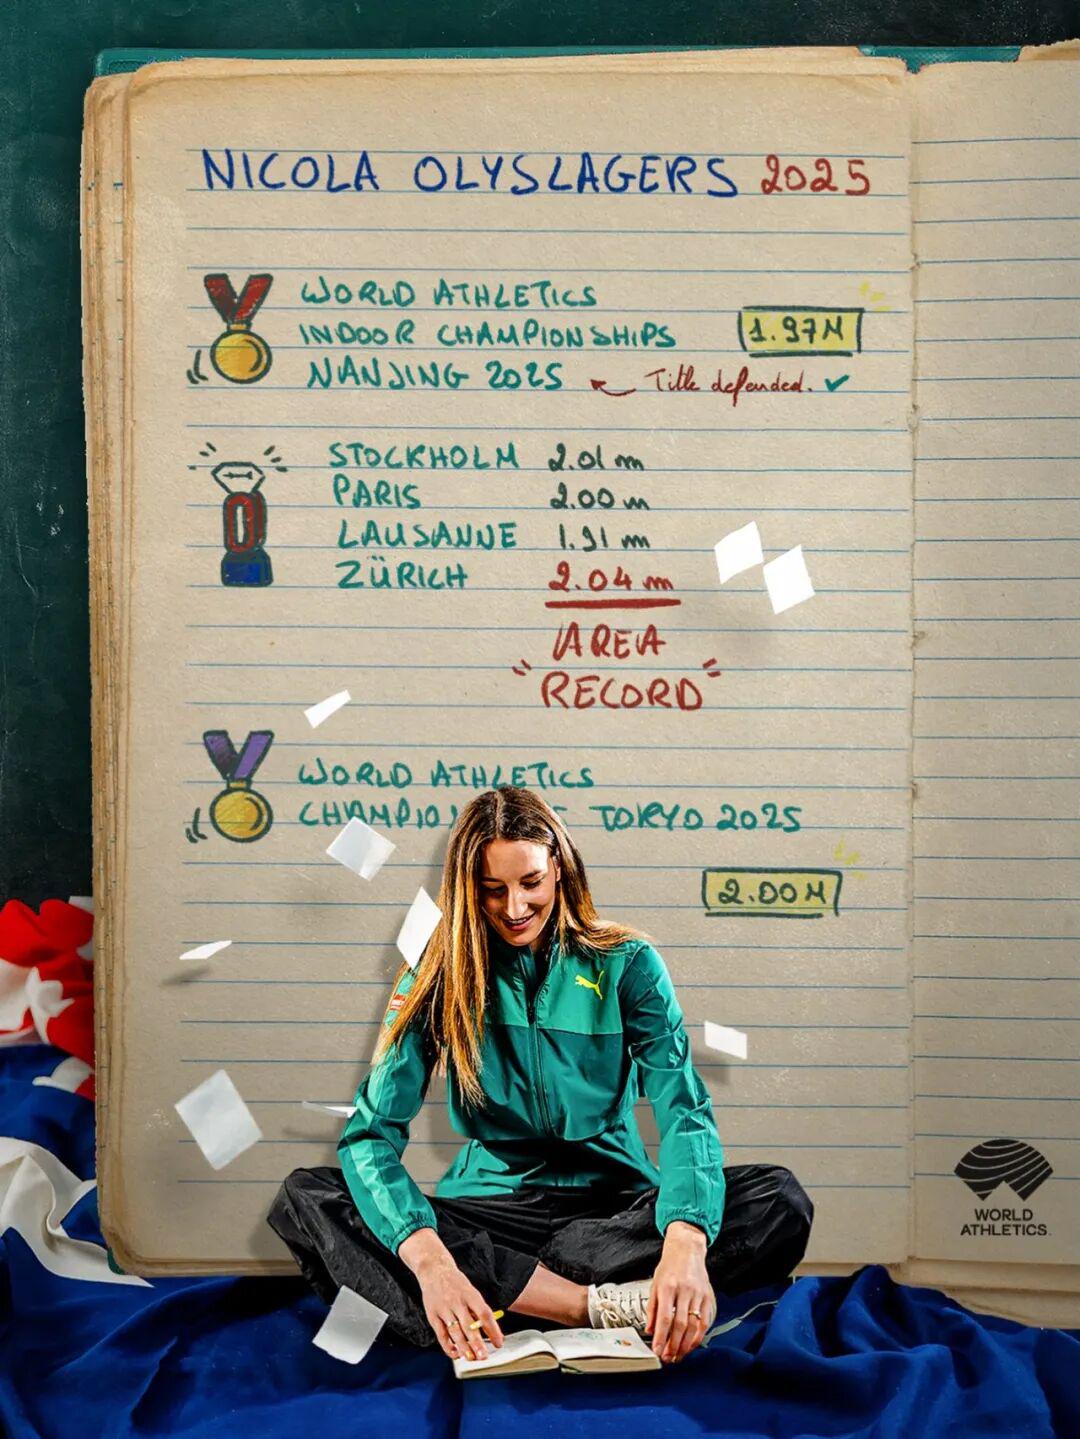 NICOLA OLYSLAGERS 2025
WORLD ATHLETICS
INDOOR CHAMPIONSHIPS 1.97M
NANJING 2025 Title defended. ✓
STOCKHOLM 2.01 m
PARIS 2.00 m
LAUSANNE 1.91 m
ZÜRICH 2.04 m
AREA
"RECORD"
WORLD ATHLETICS
TOKYO 2025
2.00M
WORLD
ATHLETICS